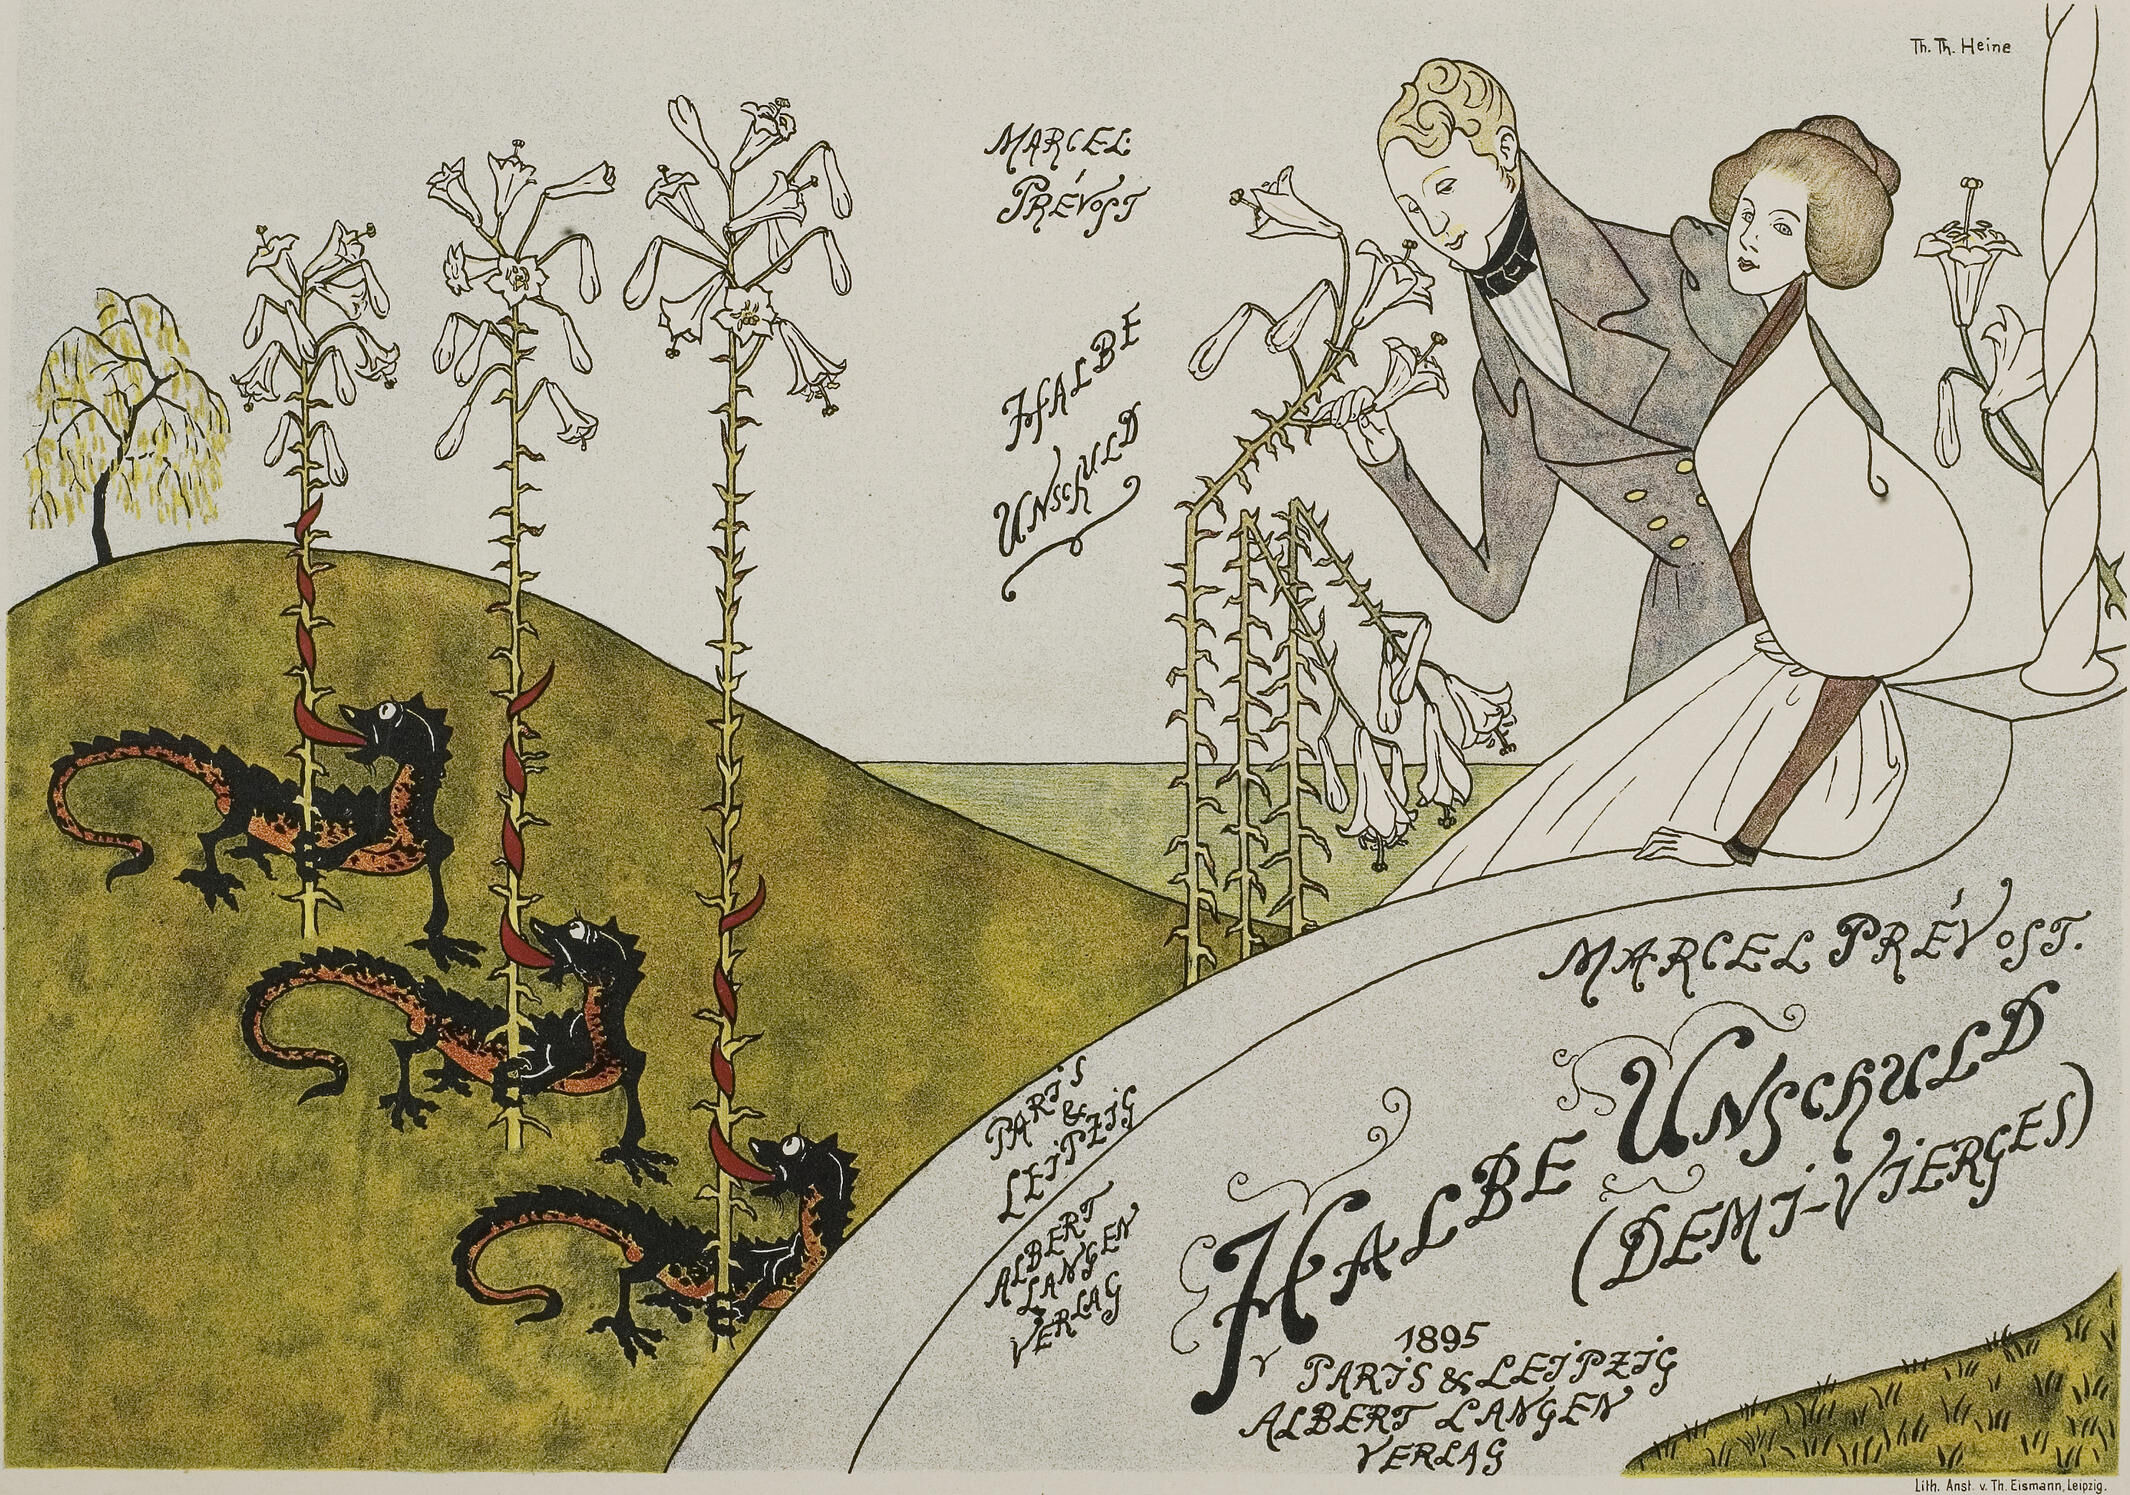 Th. Th. Heine
MARCEL
PRÉVOST
HALBE
UNSCHULD
PARIS
&
LEIPZIG
ALBERT
LANGEN
VERLAG
MARCEL PRÉVOST.
HALBE UNSCHULD
(DEMI-VIERGES)
1895
PARIS & LEIPZIG
ALBERT LANGEN
VERLAG
Lith. Anst. v. Th. Eismann, Leipzig.